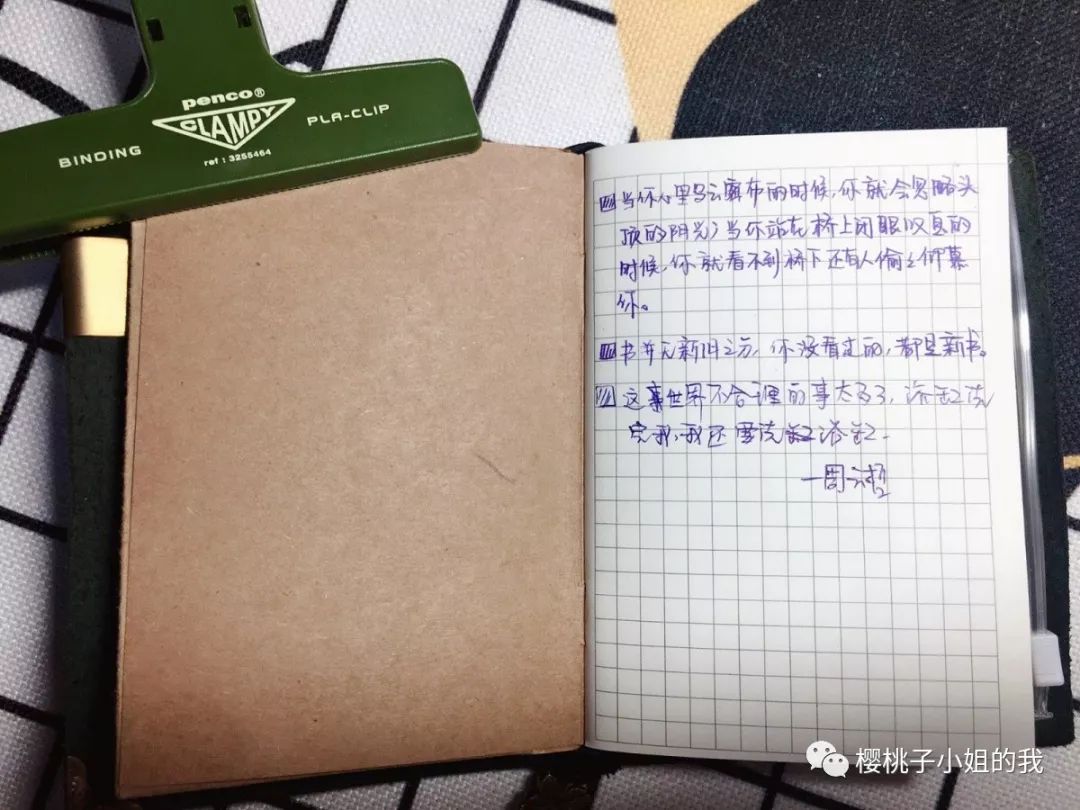 penco®
CLAMPY
BINDING
PLA-CLIP
ref : 3255464
当你心里乌云密布的时候,你就会忽略头
顶的阳光;当你站在桥上闭眼叹息的
时候,你就看不到桥下还有人偷々仰慕
你。
书并无新旧之分,你没看过的,都是新书。
这世界不合理的事太多了,浴缸洗
完我,我还要洗浴缸.
—周云哲
樱桃子小姐的我